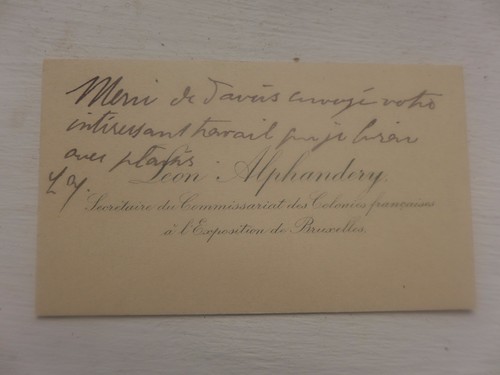 Merci de m'avoir envoyé votre
intéressant travail que je lirai
avec plaisir.
Léon Alphandery
L A.
Secrétaire du Commissariat des Colonies françaises
à l'Exposition de Bruxelles